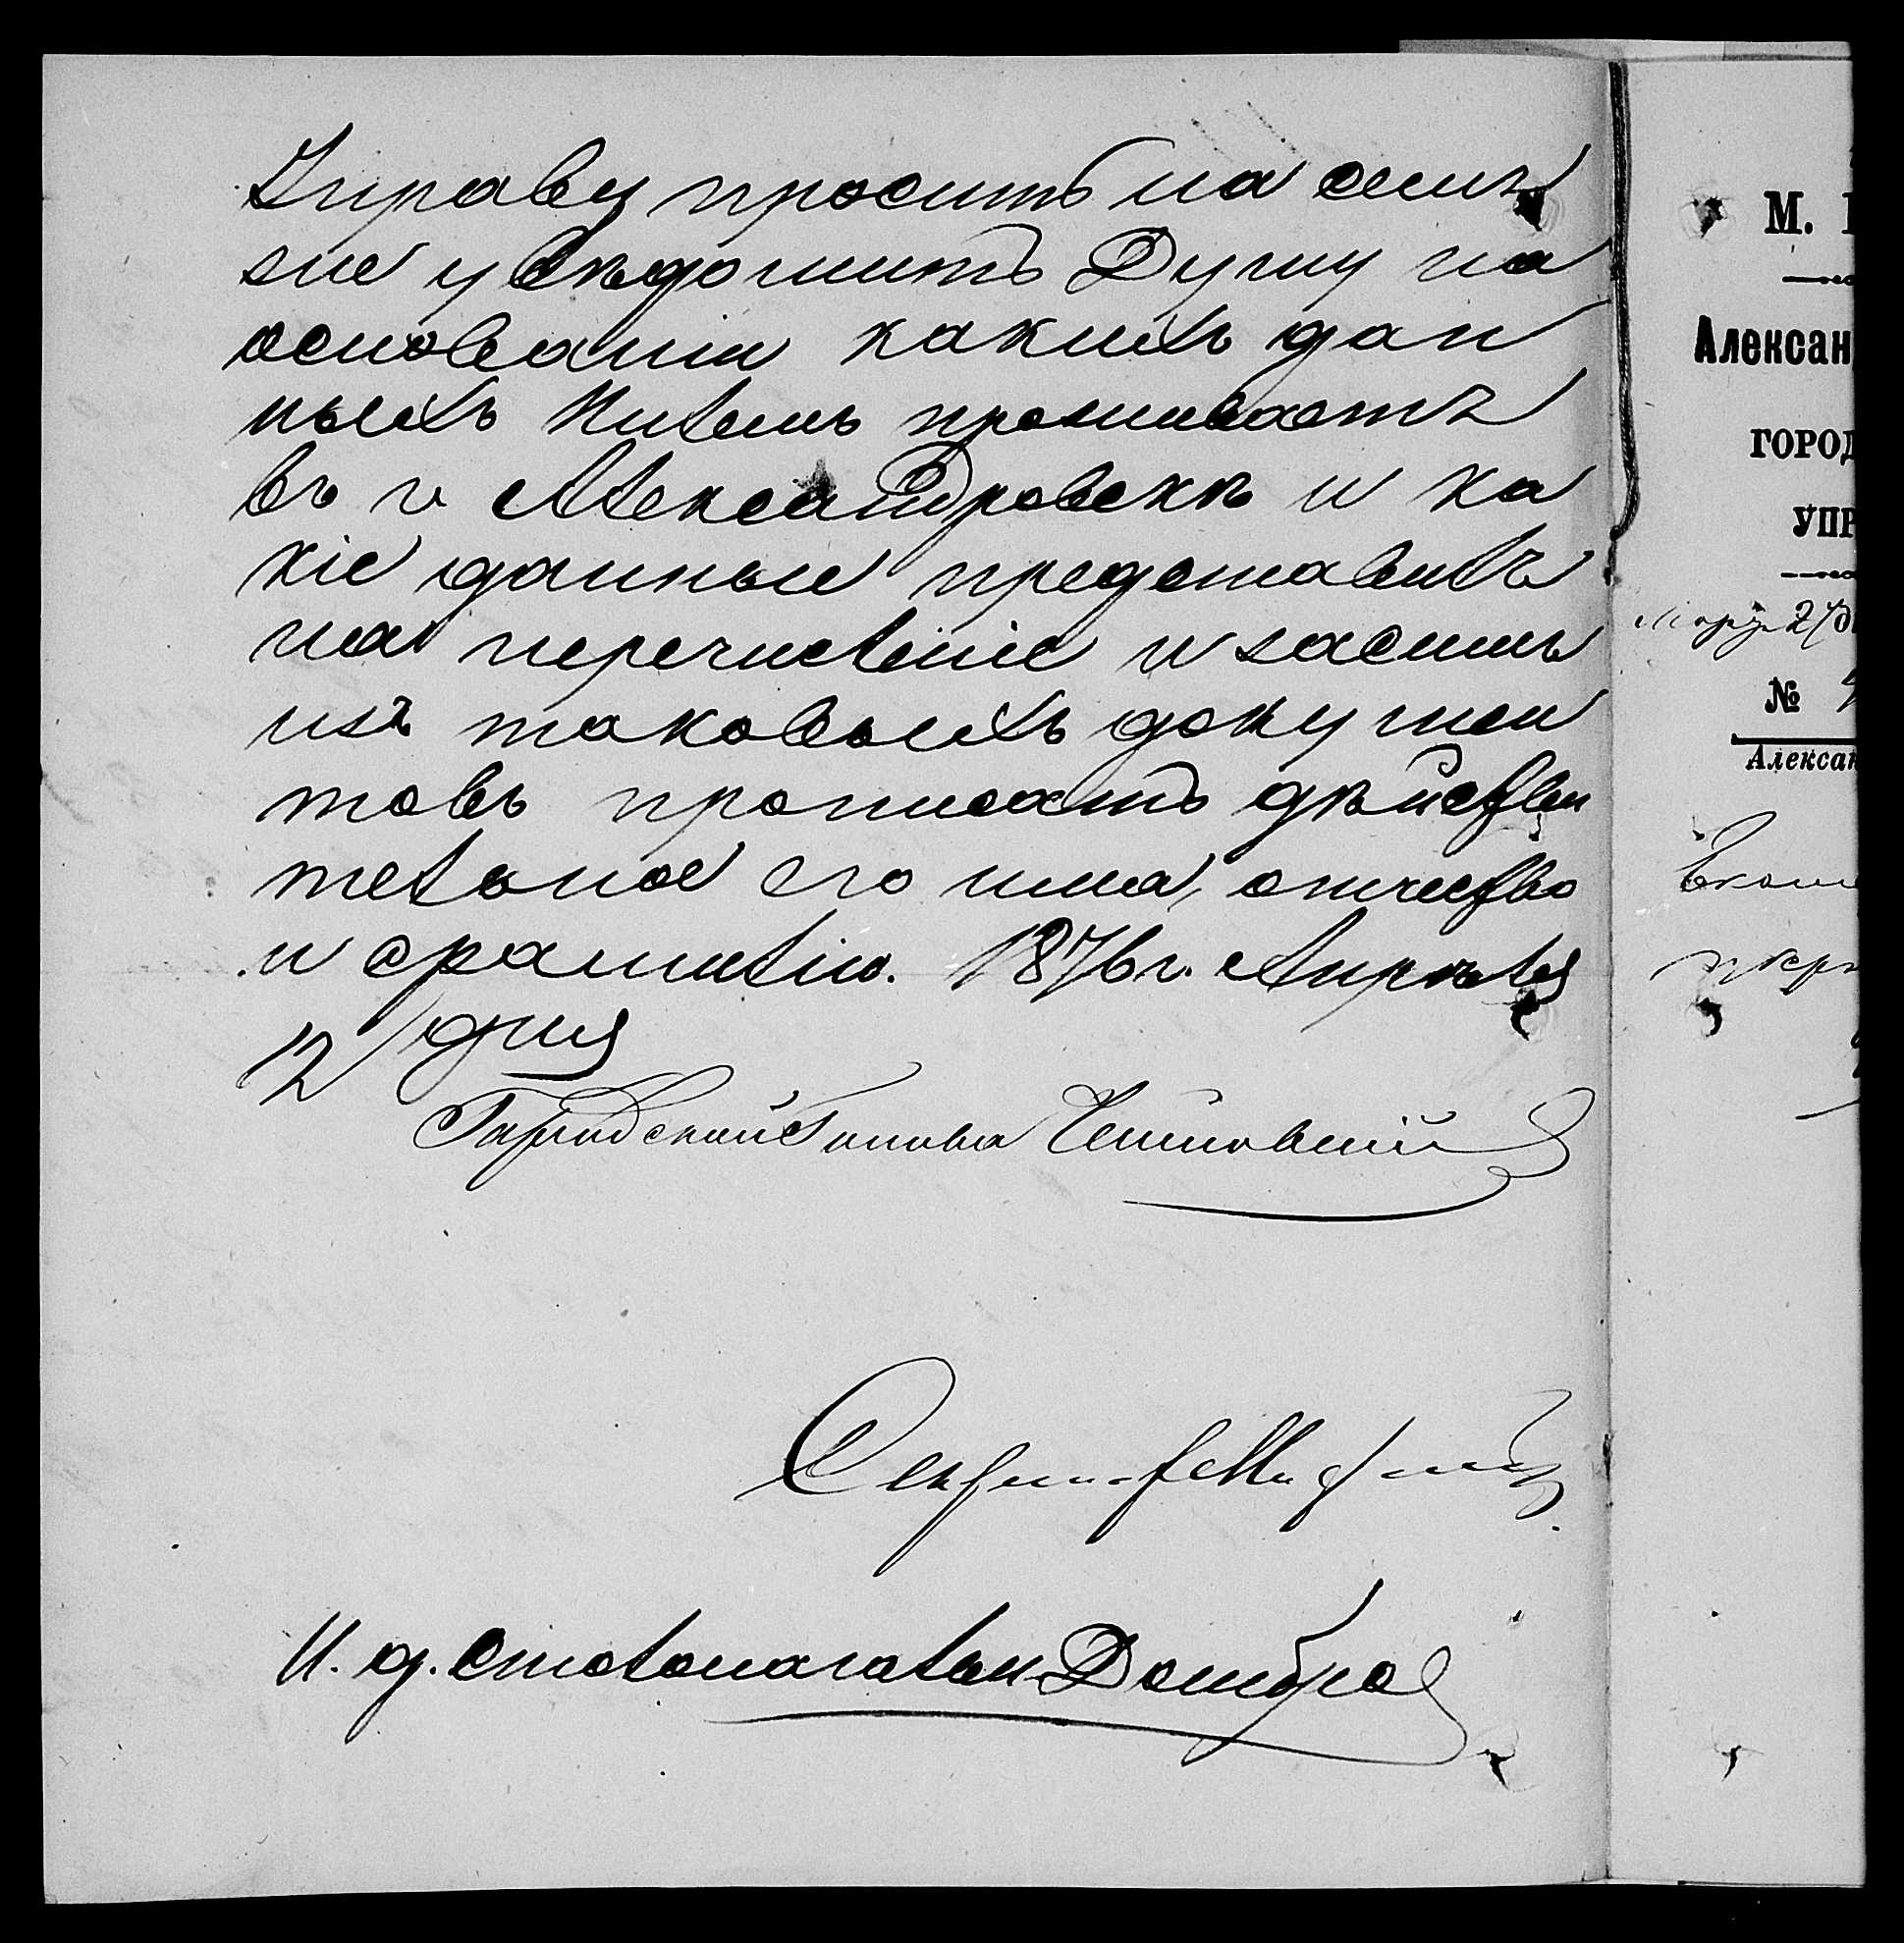 Управу проситъ на семъ
же увѣдомить Думу на
основаніи какихъ дан
ныхъ проживаетъ
въ г. Александровскѣ и ка
кіе данные представилъ
на перечисленіе и засимъ
изъ таковыхъ докумен
товъ прописать дѣйстви
тельное его имя, отчество
и фамилію. 1876 г. Апрѣля
12 дня
Городской Голова
Секретарь
И. д. Столоначальн. Домбро
М.
Алексан
ГОРОД
УПР
№
Алексан